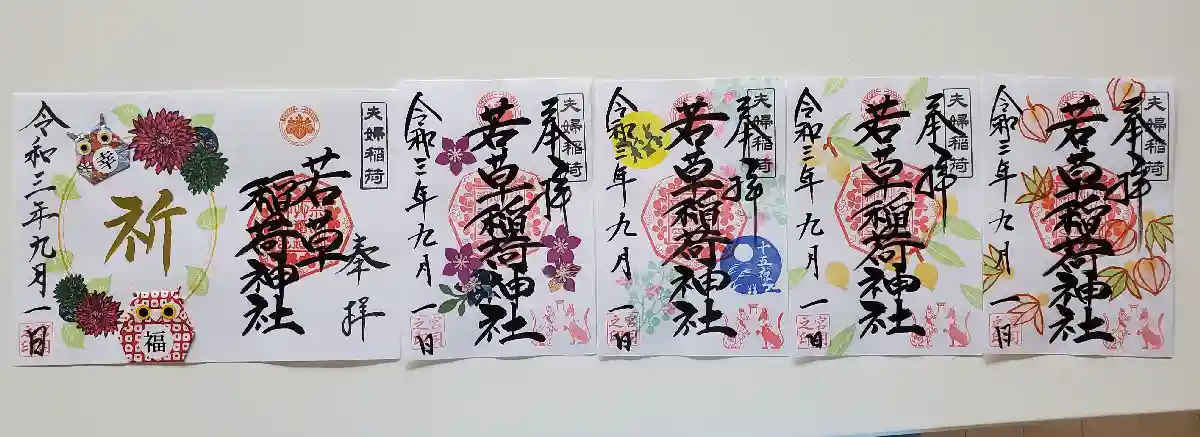 夫婦稲荷
奉拝
若草
稲荷神社
祈
福
令和三年九月一日
夫婦稲荷
奉拝
若草稲荷神社
令和三年九月一日
夫婦稲荷
奉拝
若草稲荷神社
令和三年九月一日
夫婦稲荷
奉拝
若草稲荷神社
令和三年九月一日
夫婦稲荷
奉拝
若草稲荷神社
令和三年九月一日